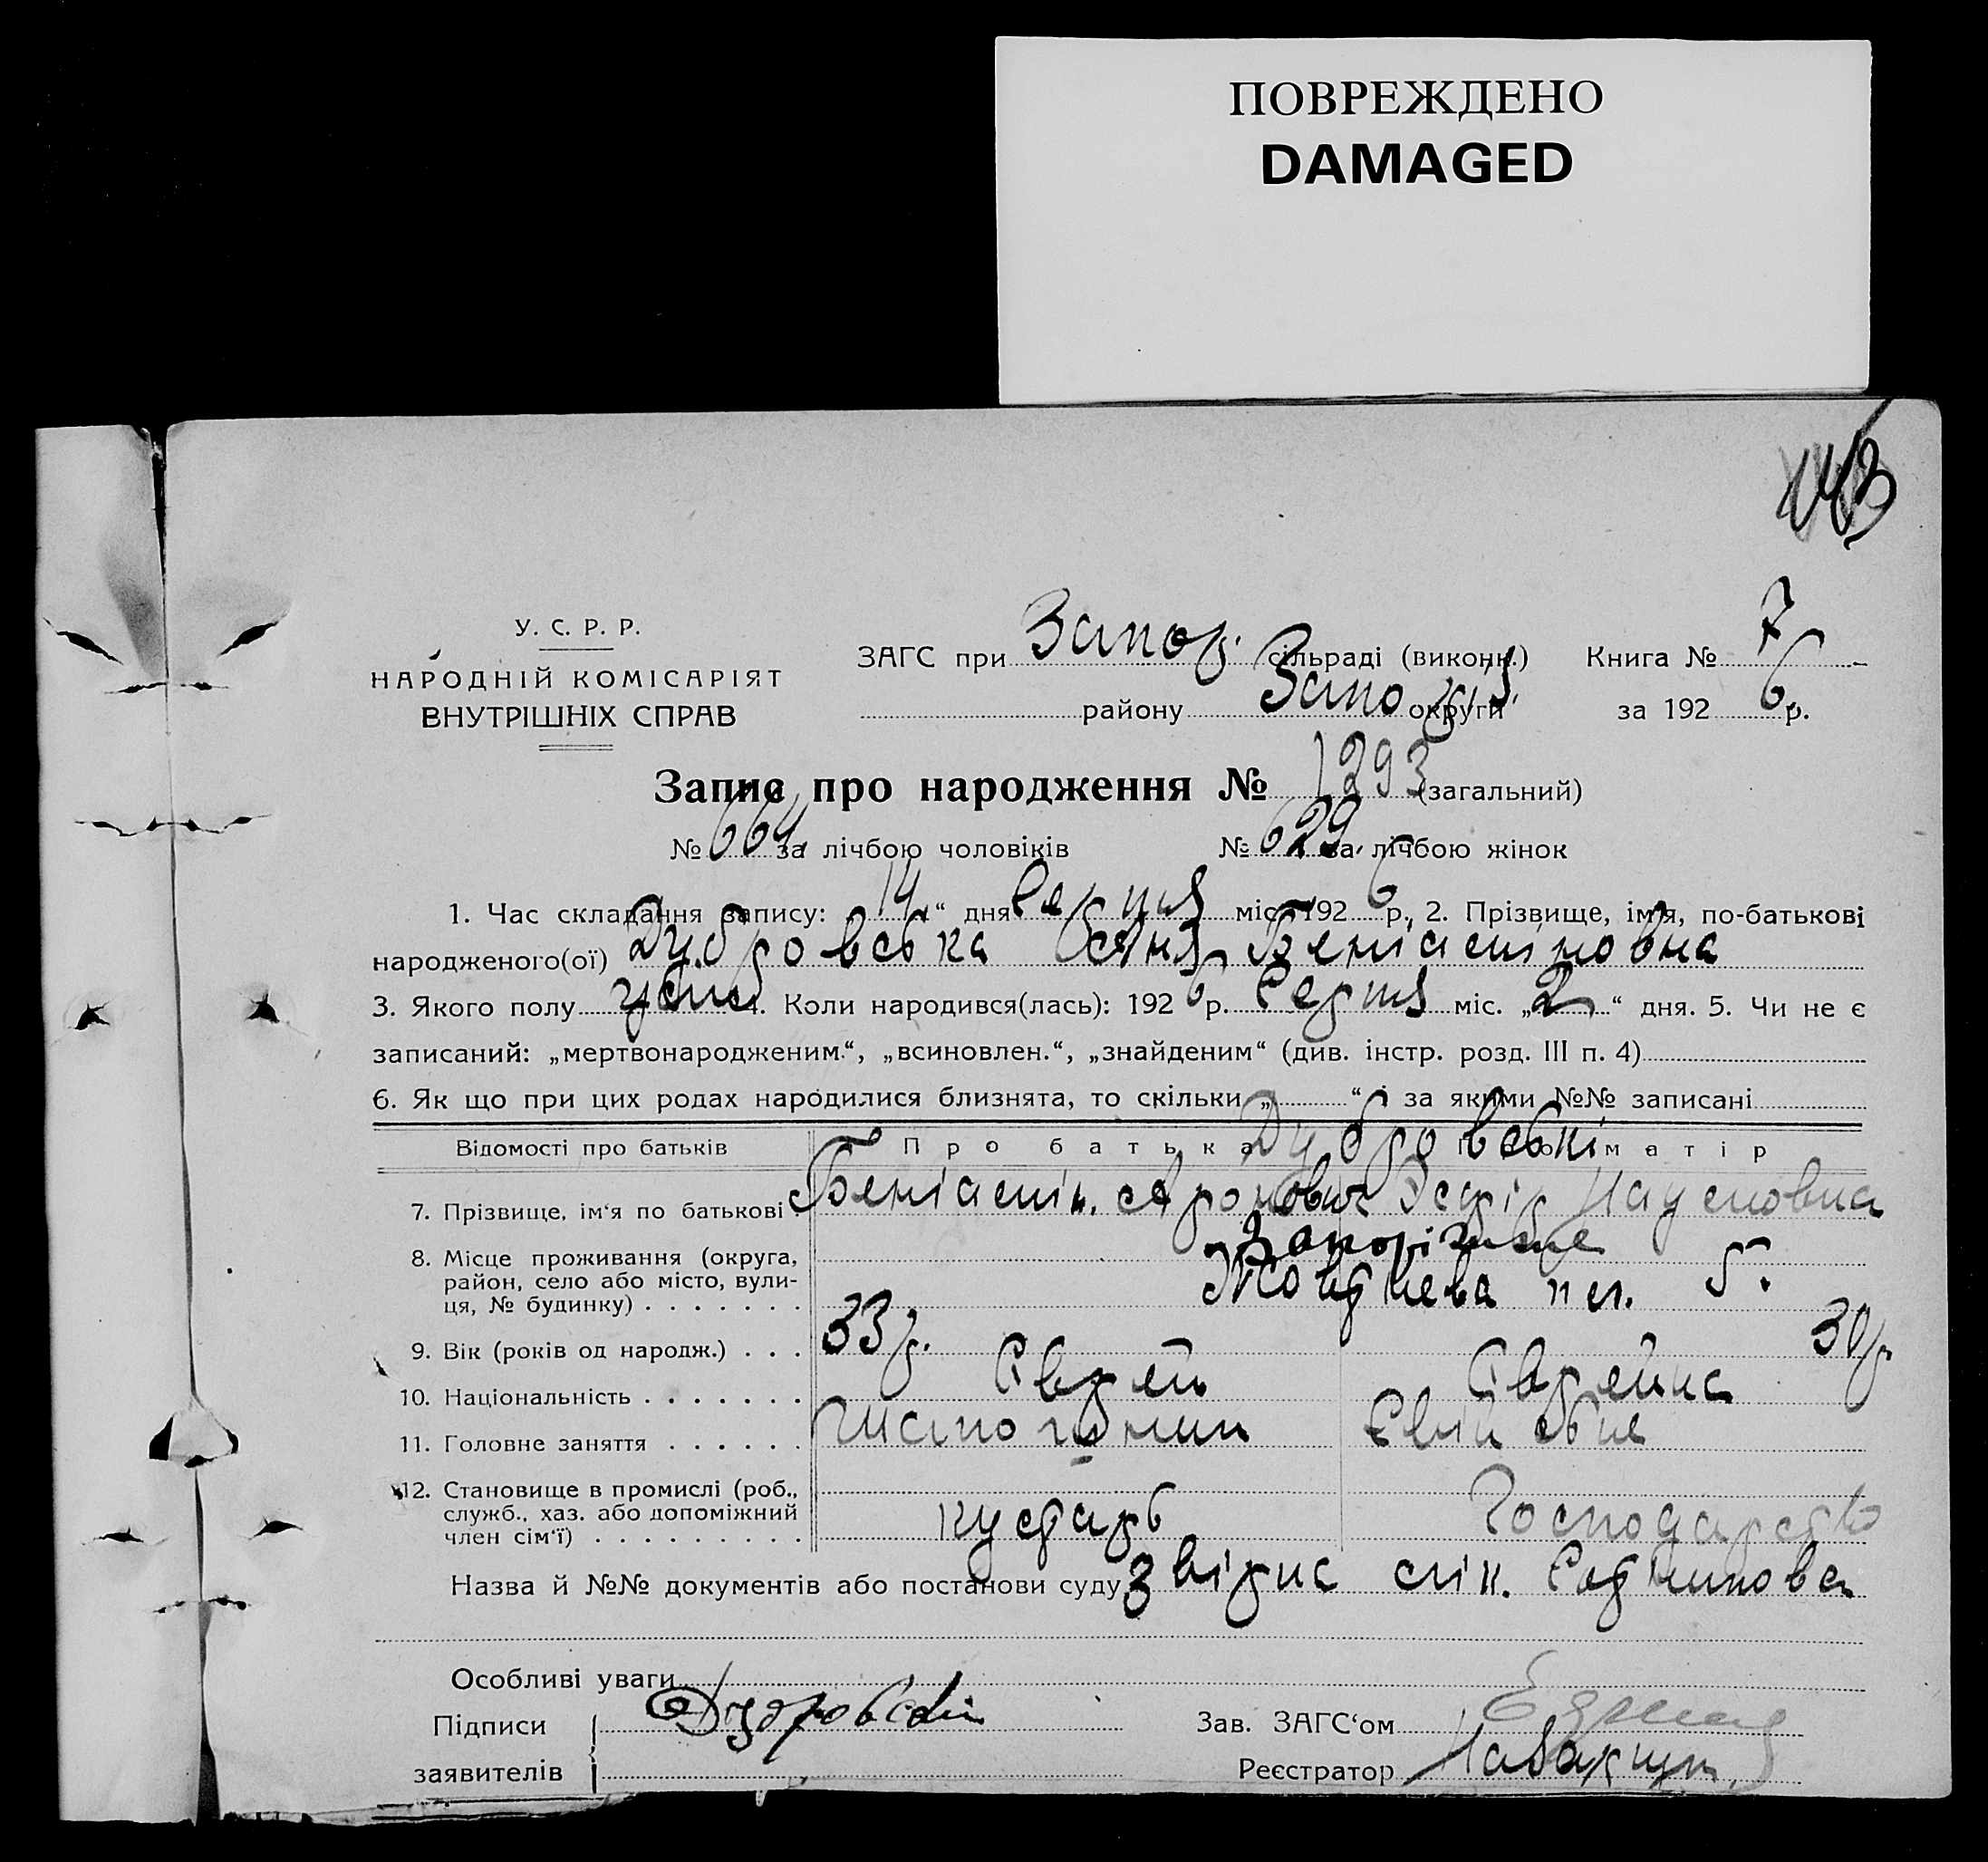 ПОВРЕЖДЕНО
DAMAGED
143
У. С. Р. Р.
НАРОДНІЙ КОМІСАРІЯТ
ВНУТРІШНІХ СПРАВ
ЗАГС при Запор. сільраді (виконк.) Книга № 7
району Запор округи за 192 6 р.
Запис про народження № 1293 (загальний)
№ 664 за лічбою чоловіків № 629 за лічбою жінок
1. Час складання запису: „ 14 “ дня серпня міс. 192 6 р. 2. Прізвище, ім'я, по-батькові
народженого(ої) Дубровська Беніаміновна
3. Якого полу жін. 4. Коли народився(лась): 192 6 р. Серпня міс. „ 2 “ дня. 5. Чи не є
записаний: „мертвонародженим“, „всиновлен.“, „знайденим“ (див. інстр. розд. III п. 4)
6. Як що при цих родах народилися близнята, то скільки „ “ і за якими №№ записані
Відомості про батьків Про батька Про матір
Дубровські
7. Прізвище, ім'я по батькові Беніамін. Аронович Наумовна
8. Місце проживання (округа, Запоріжжє
район, село або місто, вули- Жовтнева пл. 5.
ця, № будинку)
9. Вік (років од народж.) 33 р. 30 р.
10. Національність Єврей Єврейка
11. Головне заняття
12. Становище в промислі (роб.,
служб., хаз. або допоміжний кустарь Господарство
член сім'ї)
Назва й №№ документів або постанови суду
Особливі уваги
Підписи Дубровский Зав. ЗАГС‘ом
заявителів Реєстратор